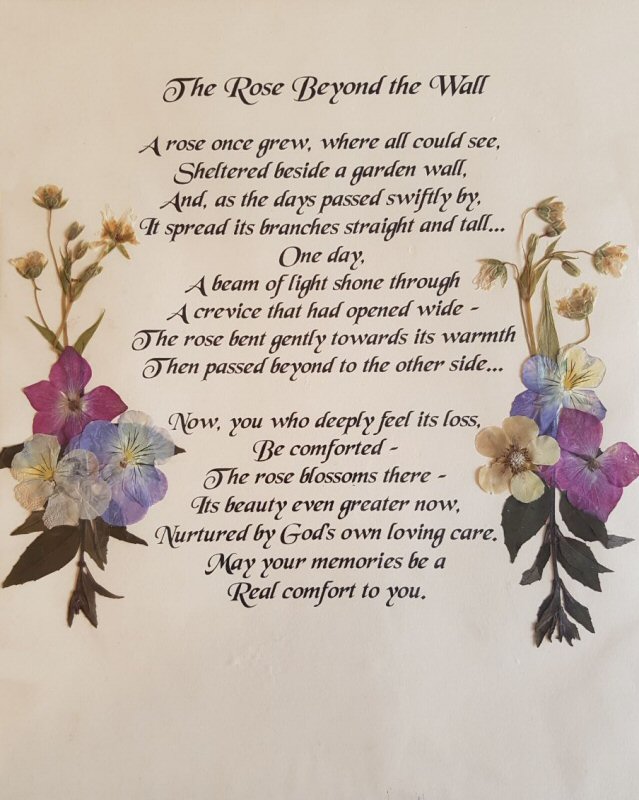 The Rose Beyond the Wall
A rose once grew, where all could see,
Sheltered beside a garden wall,
And, as the days passed swiftly by,
It spread its branches straight and tall...
One day,
A beam of light shone through
A crevice that had opened wide -
The rose bent gently towards its warmth
Then passed beyond to the other side...
Now, you who deeply feel its loss,
Be comforted -
The rose blossoms there -
Its beauty even greater now,
Nurtured by God's own loving care.
May your memories be a
Real comfort to you.